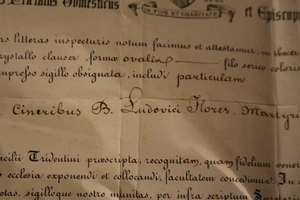 Praelatus Domesticus
IN FIDE ET CHARITATE
et Episcop
rs litteras inspecturis notum facimus et attestamur,
crystallo clausa, forma ovalis filo serico coloris
impresso sigillo obsignata, includi particulam
Cineribus B. Ludovici Flores Martyri
cilii Tridentini praescripta, recognitam, quam fidelium vener
ecclesia exponendi et collocandi, facultatem concedimus. In
otas, sigilloque nostro munitas, per infra scriptum Secretari